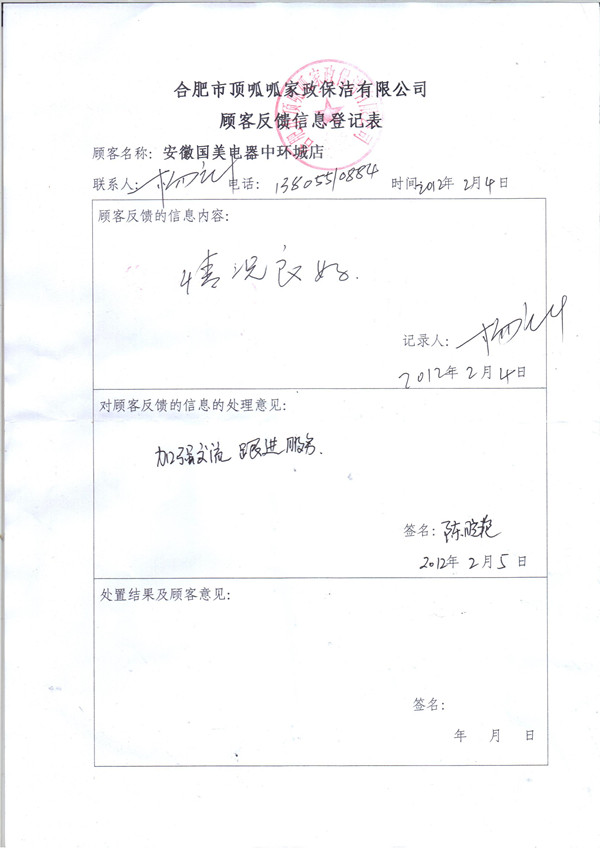 合肥市顶呱呱家政保洁有限公司
顾客反馈信息登记表
顾客名称：安徽国美电器中环城店
联系人： 电话：13805510884 时间2012年 2月4日
顾客反馈的信息内容：
情况良好.
记录人：
2012年2月4日
对顾客反馈的信息的处理意见：
加强交流 跟进服务.
签名：陈晓艳
2012年2月5日
处置结果及顾客意见：
签名：
年 月 日